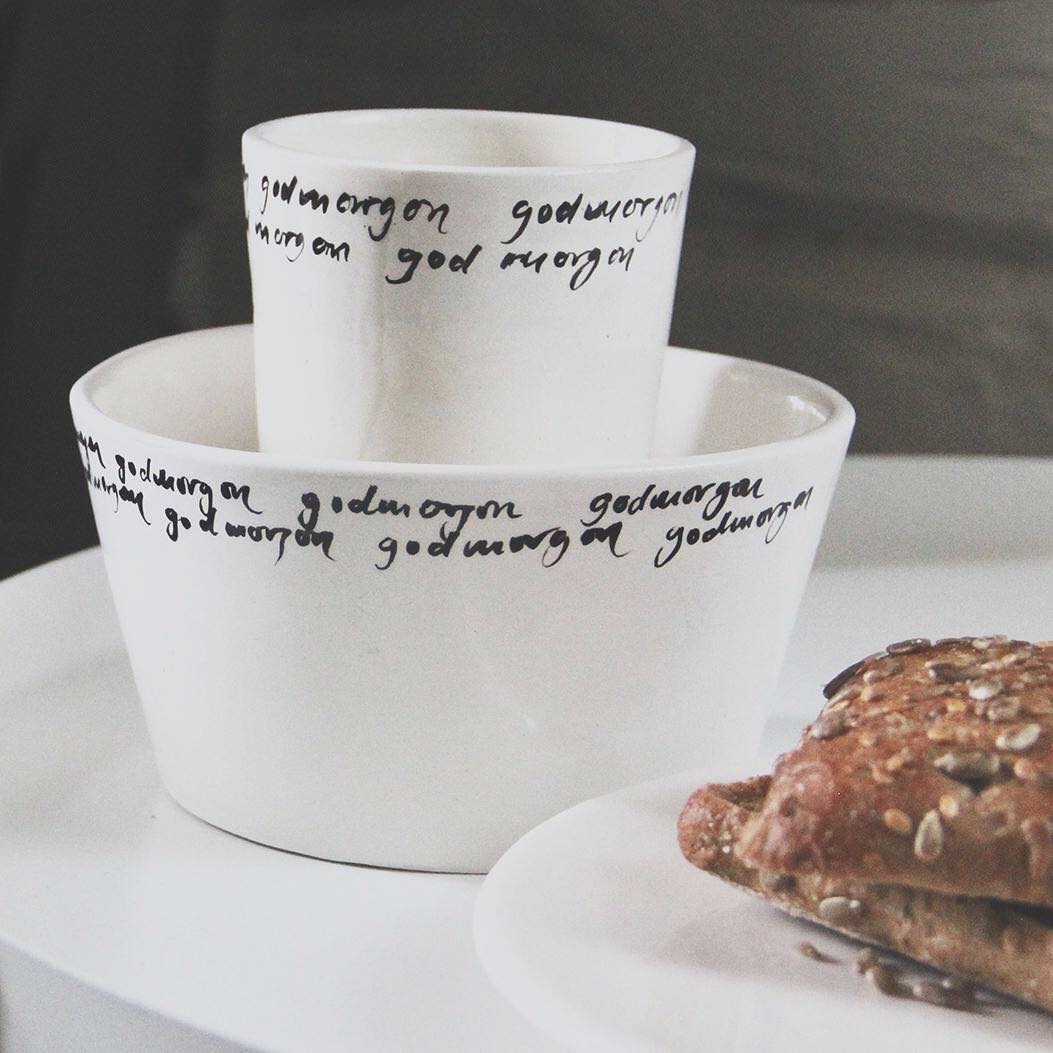 godmorgon godmorgon
morgon god morgon
godmorgon godmorgon godmorgon
morgon godmorgon godmorgon godmorgon